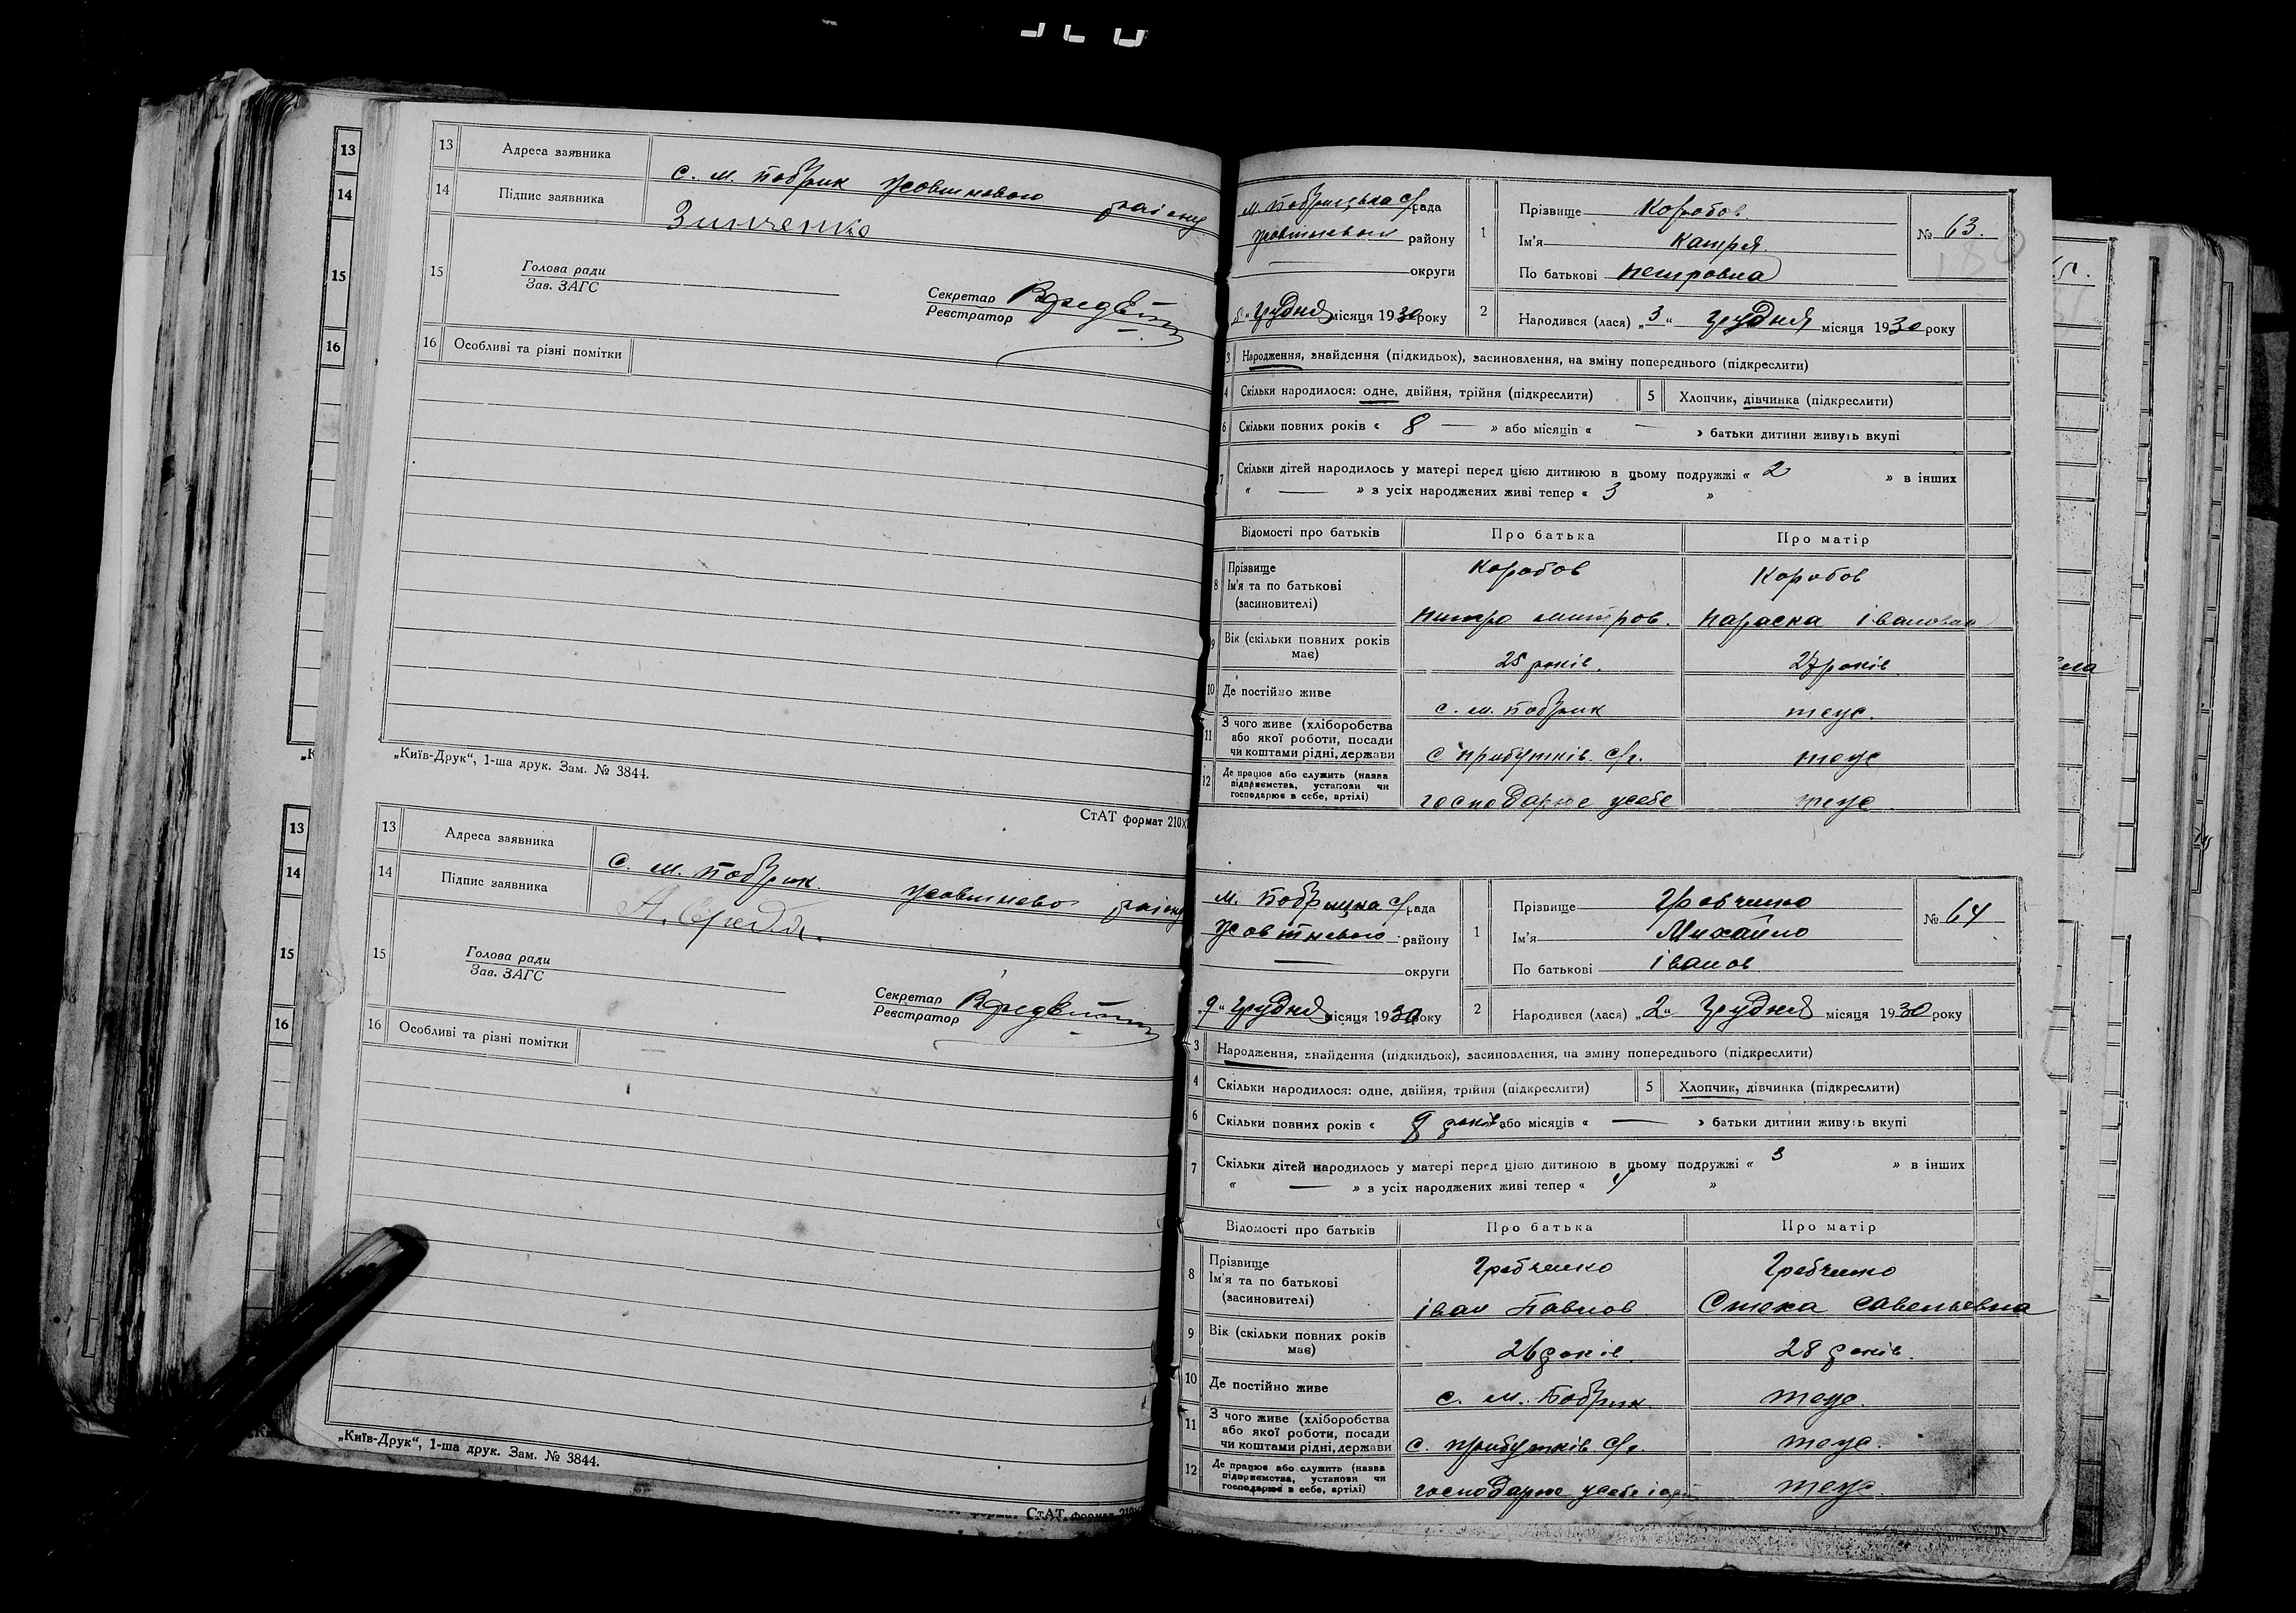 13 Адреса заявника с. м. Бобрик Жовтневого району
14 Підпис заявника Зинченко
15 Голова ради
Зав. ЗАГС
Секретар
Реєстратор
16 Особливі та різні помітки
„Київ-Друк“, 1-ша друк. Зам. № 3844.
СтАТ формат 210х
13 Адреса заявника с. м. Бобрик Жовтневого району
14 Підпис заявника
15 Голова ради
Зав. ЗАГС
Секретар
Реєстратор
16 Особливі та різні помітки
„Київ-Друк“, 1-ша друк. Зам. № 3844.
СтАТ формат 210
13
14
15
16
13
14
15
16
м Бобрицька с/рада
Жовтневого району
округи
„5“ Грудня місяця 1930 року
1 Прізвище Коробов
Ім'я Катря
По батькові Петровна
№ 63.
2 Народився (лася) „3“ Грудня місяця 1930 року
3 Народження, знайдення (підкидьок), засиновлення, на зміну попереднього (підкреслити)
4 Скільки народилося: одне, двійня, трійня (підкреслити) 5 Хлопчик, дівчинка (підкреслити)
6 Скільки повних років « 8 — » або місяців « — » батьки дитини живуть вкупі
7 Скільки дітей народилось у матері перед цією дитиною в цьому подружжі « 2 » в інших
« — » з усіх народжених живі тепер « 3 »
Відомості про батьків Про батька Про матір
8 Прізвище Коробов Коробов
Ім'я та по батькові
(засиновителі) Питро митров. Параска Івановна
9 Вік (скільки повних років
має) 25 років. 27 років
10 Де постійно живе с. м. Бобрик теж.
11 З чого живе (хліборобства
або якої роботи, посади
чи коштами рідні, держави с прибутків с/г. теж
12 Де працює або служить (назва
підприємства, установи чи
господарює в себе, артілі) господарює усебе теж
м. Бобрицька с/рада
Жовтневого району
округи
„9“ Грудня місяця 1930 року
1 Прізвище Гребченко
Ім'я Михайло
По батькові Іванов
№ 64
2 Народився (лася) „2“ Грудня місяця 1930 року
3 Народження, знайдення (підкидьок), засиновлення, на зміну попереднього (підкреслити)
4 Скільки народилося: одне, двійня, трійня (підкреслити) 5 Хлопчик, дівчинка (підкреслити)
6 Скільки повних років « 9 років або місяців « — » батьки дитини живуть вкупі
7 Скільки дітей народилось у матері перед цією дитиною в цьому подружжі « 3 » в інших
« — » з усіх народжених живі тепер « 4 »
Відомості про батьків Про батька Про матір
8 Прізвище Гребченко Гребченко
Ім'я та по батькові
(засиновителі) Іван Павлов Стеха Савельевна
9 Вік (скільки повних років
має) 26 років. 28 років.
10 Де постійно живе с. м. Бобрик теж.
11 З чого живе (хліборобства
або якої роботи, посади
чи коштами рідні, держави с. прибутків с/г. теж.
12 Де працює або служить (назва
підприємства, установи чи
господарює в себе, артілі) господарює усебе теж